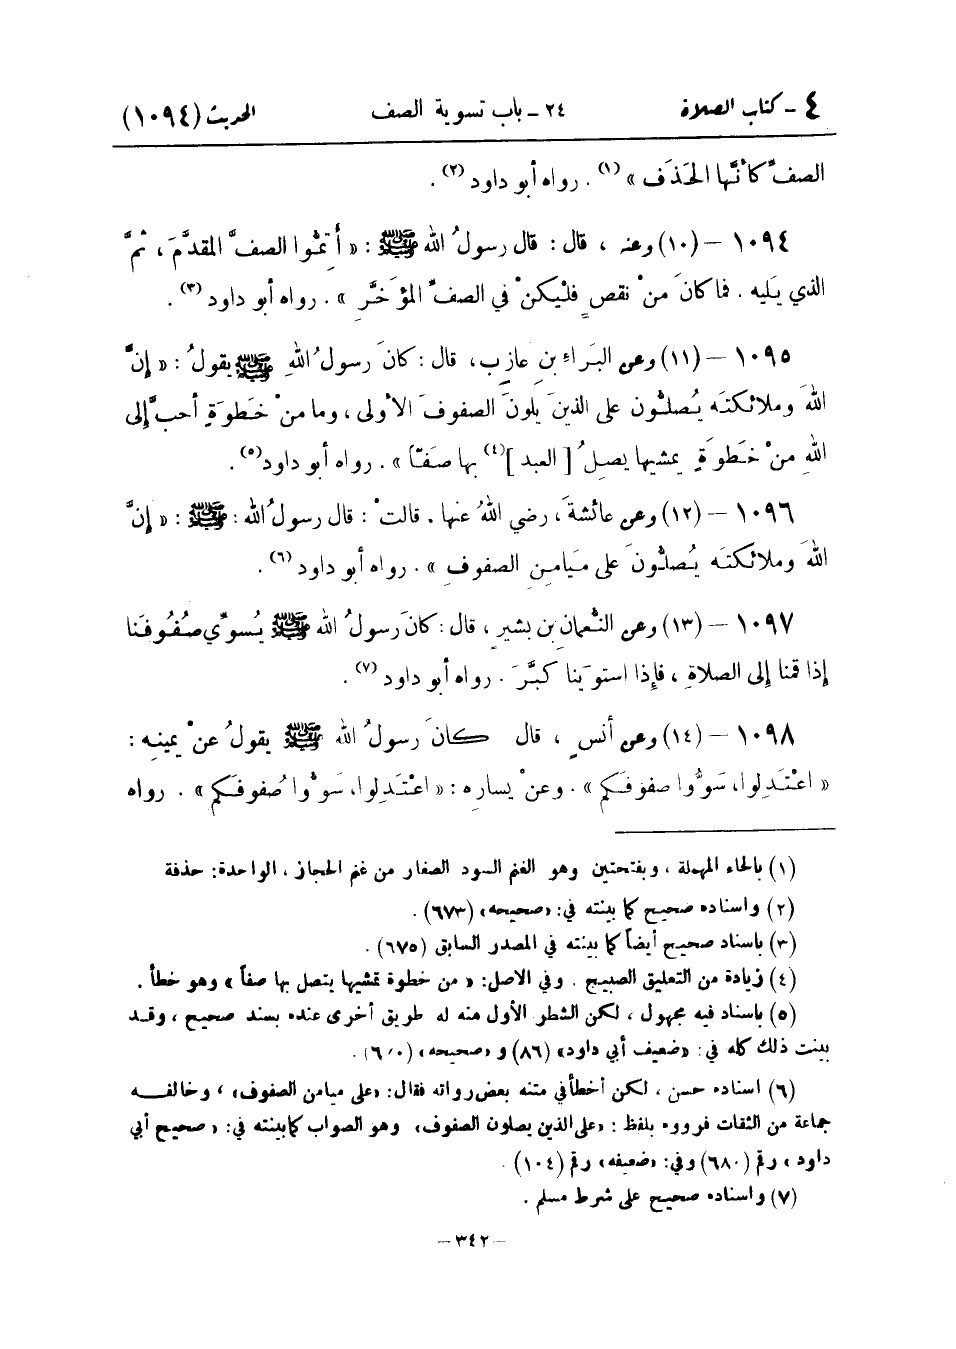 ٤ - كتاب الصلاة ٢٤ - باب تسوية الصف الحديث (١٠٩٤)
الصفِّ كأنَّها الحَذَف » (١) . رواه أبو داود (٢) .
١٠٩٤ – (١٠) وعنه ، قال : قال رسولُ الله ﷺ : « أتِمُّوا الصفَّ المقدَّمَ ، ثمَّ
الذي يَليه . فما كانَ منْ نقصٍ فليْكنْ في الصفِّ المؤَخَّرِ » . رواه أبو داود (٣) .
١٠٩٥ – (١١) وعن البَراءِ بنِ عازِبٍ ، قال : كانَ رسولُ اللهِ ﷺ يقولُ : « إنَّ
اللهَ وملائكتَه يُصلُّون على الذينَ يَلونَ الصفوفَ الأولى ، وما منْ خَطوَةٍ أحبَّ إلى
اللهِ منْ خَطوَةٍ يمشيها يصِلُ [ العبد ](٤) بها صفّاً » . رواه أبو داود(٥) .
١٠٩٦ – (١٢) وعن عائشةَ ، رضي اللهُ عنها . قالتْ : قال رسولُ الله : ﷺ : « إنَّ
اللهَ وملائكتَه يُصلُّونَ على مَيامِنِ الصفوفِ » . رواه أبو داود (٦) .
١٠٩٧ – (١٣) وعن النُّعمانِ بن بشيرٍ ، قال : كانَ رسولُ الله ﷺ يُسوِّي صُفُوفَنا
إذا قمنا إلى الصلاةِ ، فإذا استوَينا كبَّرَ . رواه أبو داود (٧) .
١٠٩٨ – (١٤) وعن أنسٍ ، قال كانَ رسولُ الله ﷺ يقولُ عنْ يمينِه :
« اعْتَدِلوا ، سَوُّوا صفوفَكم » . وعنْ يسارِه : « اعْتَدِلوا ، سَوُّوا صُفوفَكم » . رواه
(١) بالحاء المهملة ، وبفتحتين وهو الغنم السود الصغار من غنم الحجاز ، الواحدة : حذفة
(٢) واسناده صحيح كما بينته في : «صحيحه» (٦٧٣) .
(٣) باسناد صحيح أيضاً كما بينته في المصدر السابق (٦٧٥) .
(٤) زيادة من التعليق الصبيح . وفي الاصل : « من خطوة تمشيها يتصل بها صفاً » وهو خطأ .
(٥) باسناد فيه مجهول ، لكن الشطر الأول منه له طريق أخرى عنده بسند صحيح ، وقد
بينت ذلك كله في : «ضعيف أبي داود» (٨٦) و «صحيحه»
(٦) اسناده حسن ، لكن أخطأ في متنه بعض رواته فقال : «على ميامن الصفوف» ، وخالفه
جماعة من الثقات فرووه بلفظ : «على الذين يصلون الصفوف» وهو الصواب كما بينته في : « صحيح أبي
داود » رقم (٦٨٠) وفي : «ضعيفه» رقم (١٠٤) .
(٧) واسناده صحيح على شرط مسلم .
– ٣٤٢ –